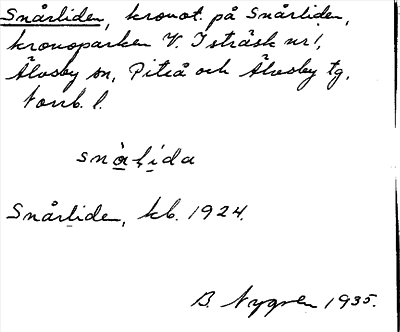 Snårliden, kronot. på Snårliden,
kronoparken V. Isträsk nr 1,
Älvsby sn, Piteå och Älvsby tg,
Norrb. l.
snå̀l̥ida
Snårliden, kb. 1924.
B. Nygren 1935.